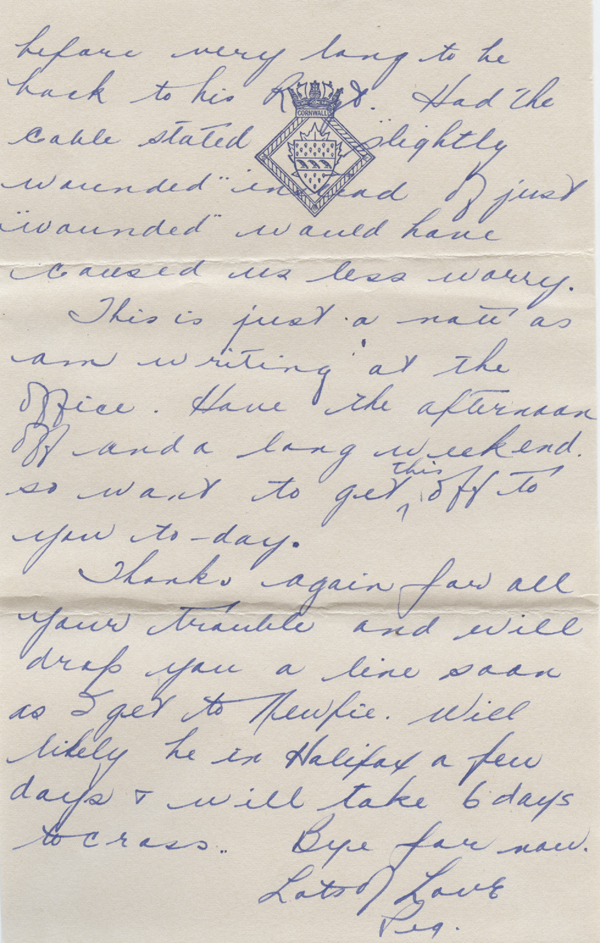 before very long to be
back to his Reg't. Had the
CORNWALL
cable stated "slightly
wounded" instead of just
"wounded" would have
caused us less worry.
This is just a note as
am writing at the
office. Have the afternoon
off and a long weekend.
so want to get this off to
you to-day.
Thanks again for all
your trouble and will
drop you a line soon
as I get to Newfie. Will
likely be in Halifax a few
days & will take 6 days
to cross.. Bye for now.
Lots of Love
Peg.